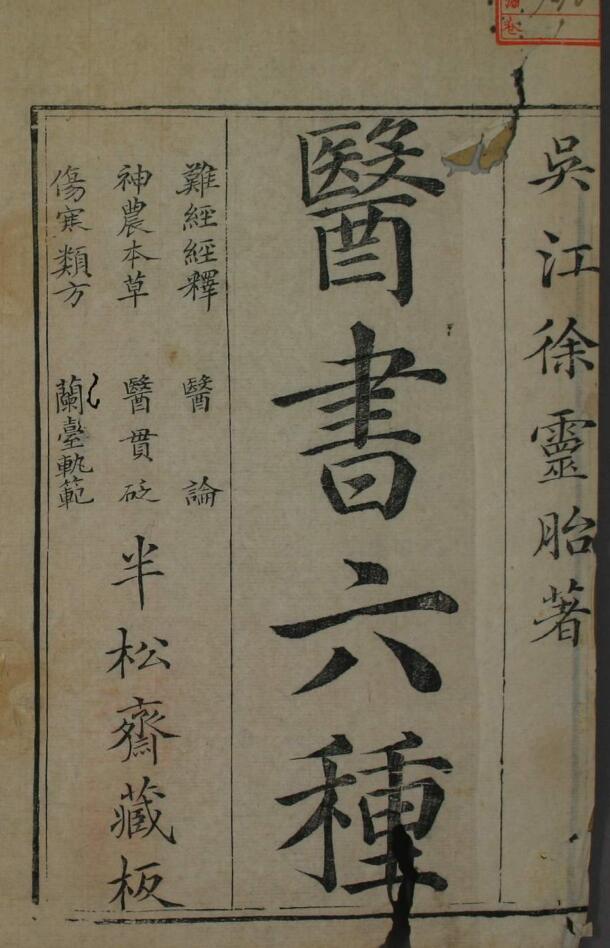 吳江徐靈胎著
醫書六種
難經經釋 醫論
神農本草 醫貫砭
傷寒類方 蘭臺軌範
半松齋藏板